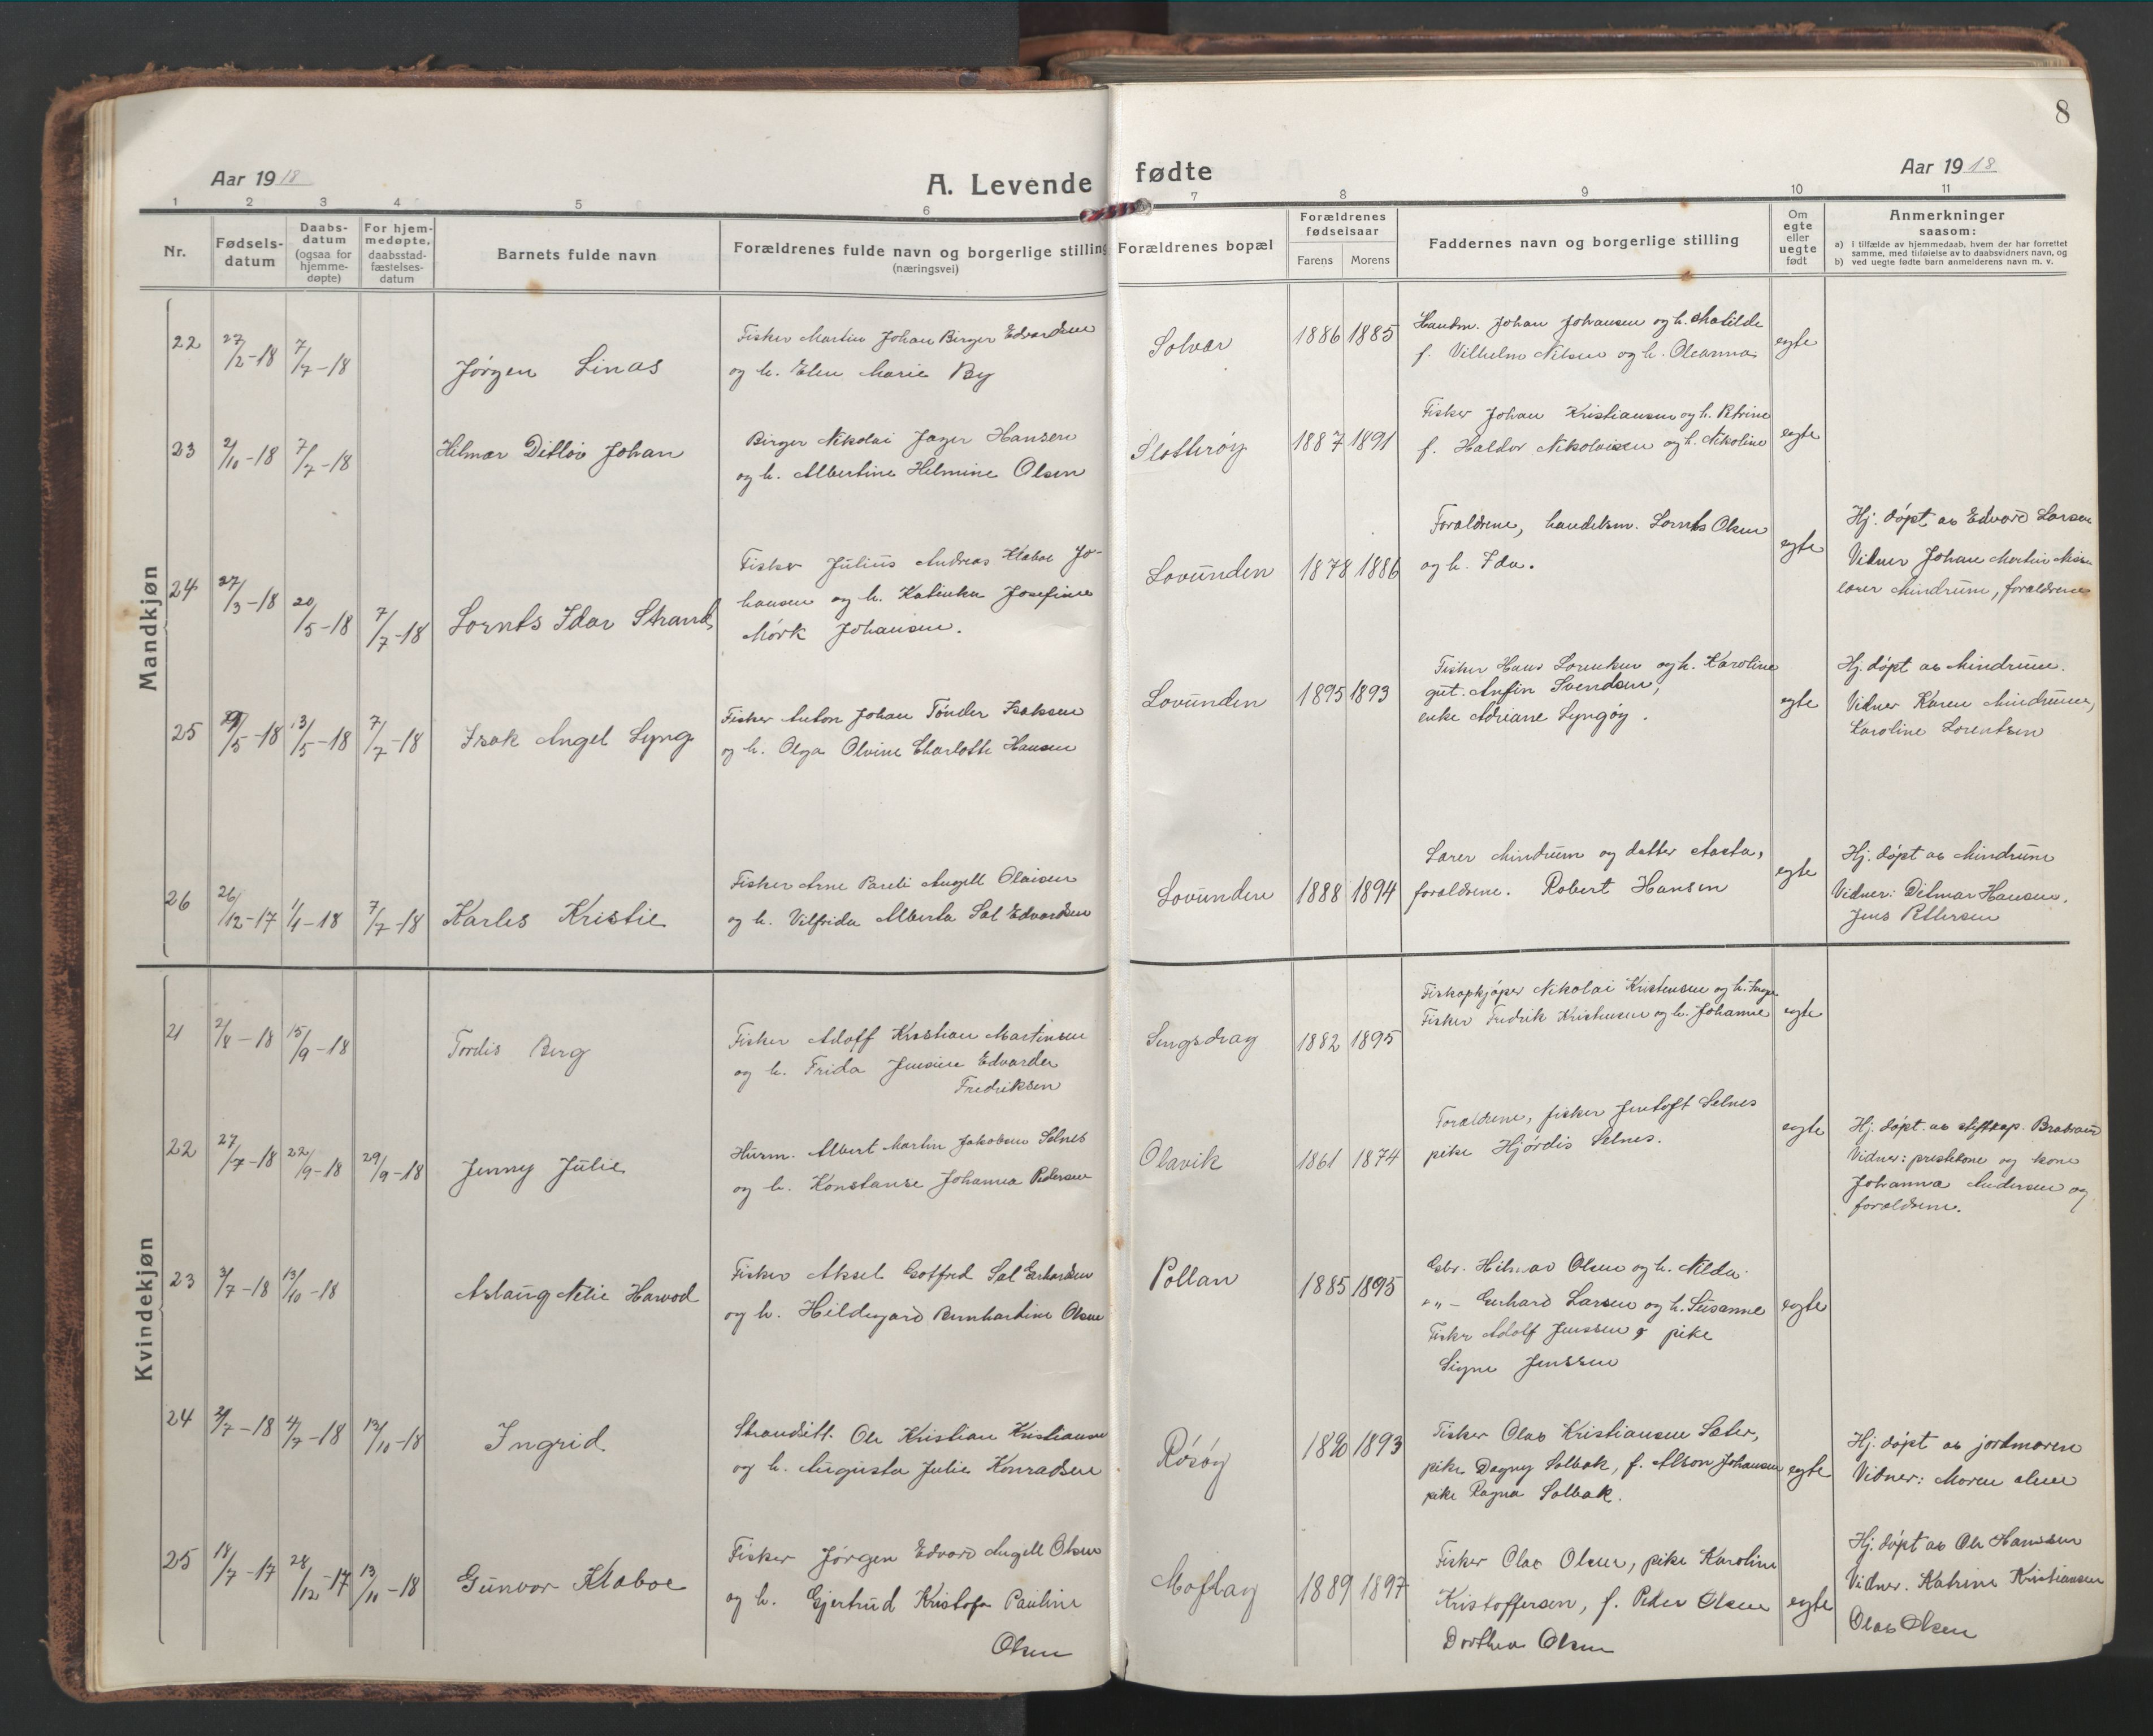 8
Aar 1918
A. Levende fødte
Aar 1918
1 2 3 4 5 6 7 8 9 10 11
Nr.
Fødsels-
datum
Daabs-
datum
(ogsaa for
hjemme-
døpte)
For hjem-
medøpte,
daabsstad-
fæstelses-
datum
Barnets fulde navn
Forældrenes fulde navn og borgerlige stilling
(næringsvei)
Forældrenes bopæl
Forældrenes
fødselsaar
Farens Morens
Faddernes navn og borgerlige stilling
Om
egte
eller
uegte
født
Anmerkninger
saasom:
a) i tilfælde av hjemmedaab, hvem der har forrettet
samme, med tilføielse av to daabsvidners navn, og
b) ved uegte fødte barn anmelderens navn m. v.
Mandkjøn
22 27/2-18 7/7-18
Jørgen Linas
Fisker Martin Johan Birger Edvardsen
og h. Elen Marie By
Solvær
1886 1885
Handm. Johan Johansen og h. Matilde
f. Vilhelm Nilsen og h. Oleanna
egte
23 2/10-18 7/7-18
Hilmar Ditlov Johan
Birger Nikolai Jager Hansen
og h. Albertine Helmine Olsen
Slotterøy
1887 1891
Fisker Johan Kristiansen og h. Petrine
f. Haldor Nikolaisen og h. Nikoline
egte
24 27/3-18 20/5-18 7/7-18
Lornts Idar Strand
Fisker Julius Andreas Klaboe Jo-
hansen og h. Katinka Josefine
Mörk Johansen.
Lovunden
1878 1886
Foraldrene, handelsm. Lornts Olsen
og h. Ida.
egte
Hj. døpt av Edvard Larsen
Vidner Johan Martin
lærer Mindrum, foraldrene
25 /5-18 13/5-18 7/7-18
Isak Angel Lyng
Fisker Anton Johan Tønder Isaksen
og h. Olga Olvine Charlotte Hansen
Lovunden
1895 1893
Fisker Hans Lorentsen og h. Karoline
gut. Anfin Svendsen,
enke Adriane Lyngøy.
egte
Hj. døpt av Mindrum.
Vidner Karen Mindrum,
Karoline Lorentsen
26 26/12-17 1/1-18 7/7-18
Karles Kristie
Fisker Arne Pareli Angell Olaisen
og h. Vilfrida Alberta Sal Edvardsen
Lovunden
1888 1894
Lærer Mindrum og datter Aasta,
foraldrene. Robert Hansen
egte
Hj. døpt av Mindrum
Vidner: Ditmar Hansen,
Jens Pettersen
Kvindekjøn
21 2/8-18 15/9-18
Tordis Berg
Fisker Adolf Kristian Martinsen
og h. Frida Jensine Edvarda
Fredriksen
Lengsdrag
1882 1895
Fiskopkjøper Nikolai Kristensen og h. Inga
Fisker Fredrik Kristensen og h. Johanne
egte
22 27/7-18 22/9-18 29/9-18
Jenny Julie
Hurm. Albert Martin Jakobsen Selnes
og h. Konstanse Johanna Pedersen
Olavik
1861 1874
Foraldrene, fisker Jentoft Selnes
pike Hjørdis Selnes.
egte
Hj. døpt. av stiftskap. Brabrand
Vidner: prestekone og kone
Johanna Andersen og
foraldrene.
23 3/7-18 13/10-18
Aslaug Nelie Harvod
Fisker Aksel Gotfred Sal Gerhardsen
og h. Hildegard Bernhardine Olsen
Pollan
1885 1895
Gbr. Hilmar Olsen og h. Nilda
" - Gerhard Larsen og h. Susanne
Fisker Adolf Jenssen, pike
Signe Jenssen
egte
24 2/7-18 4/7-18 13/10-18
Ingrid
Strandsitt. Ole Kristian Kristiansen
og h. Augusta Julie Konradsen
Røsøy
1890 1893
Fisker Olav Kristiansen Sæter,
pike Dagny Solbak, f. Alson Johansen
pike Ragna Solbak.
egte
Hj. døpt av jordmoren
Vidner: Moren alene
25 18/7-17 28/12-17 13/10-18
Gunvor Klaboe
Fisker Jørgen Edvard Angell Olsen
og h. Gjertrud Kristofa Pauline
Olsen
Moflag
1889 1897
Fisker Olav Olsen, pike Karoline
Kristoffersen, f. Peder Olsen
Dorthea Olsen
egte
Hj. døpt av Ole Hanssen
Vidner. Katrine Kristiansen
Olav Olsen